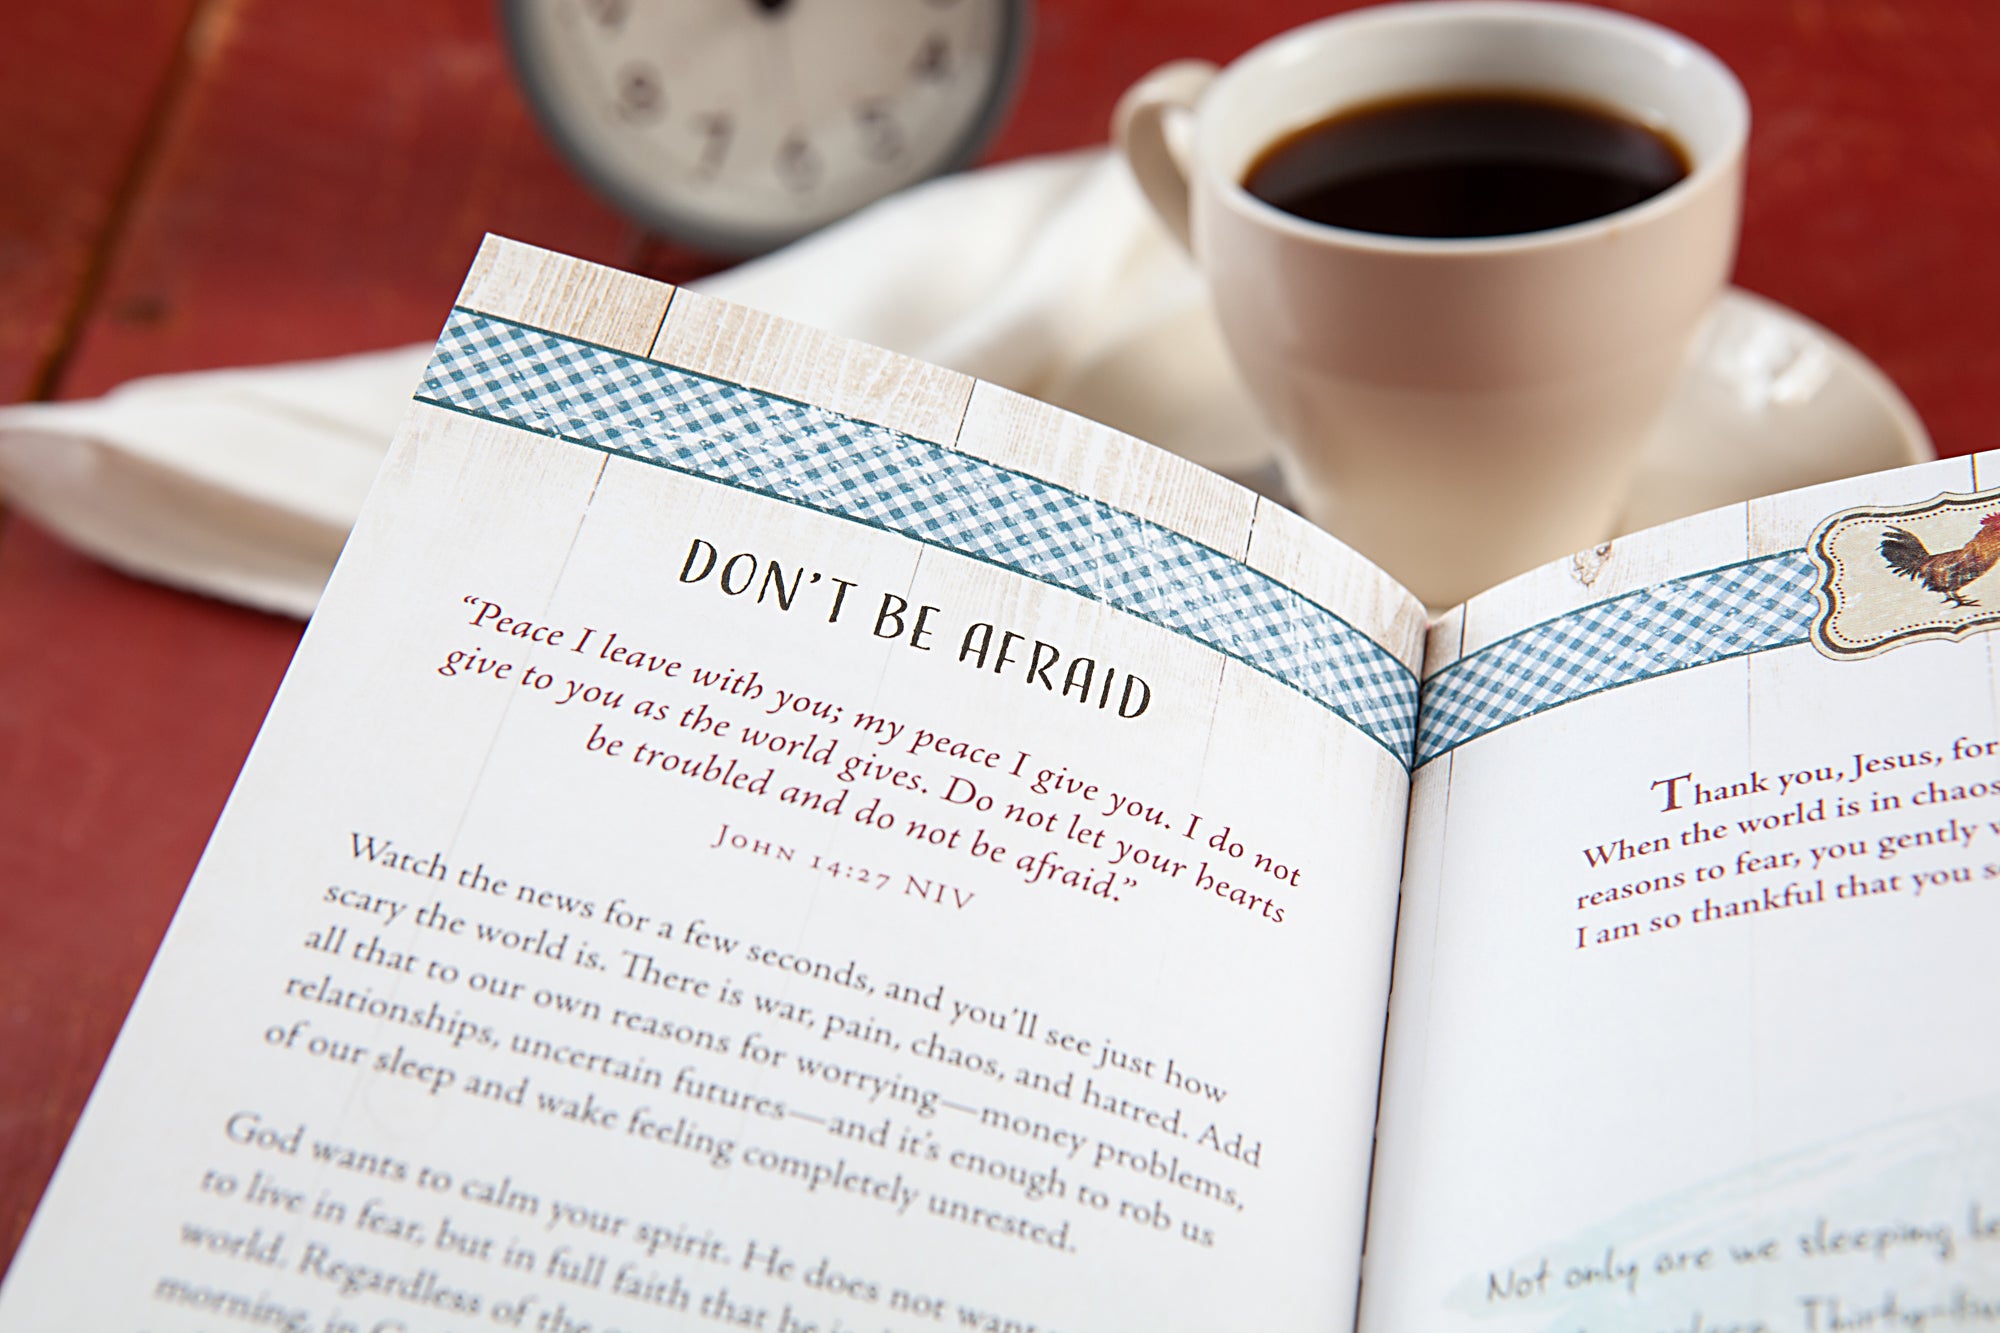 9
4
8
7
6
5
DON'T BE AFRAID
“Peace I leave with you; my peace I give you. I do not
give to you as the world gives. Do not let your hearts
be troubled and do not be afraid.”
John 14:27 NIV
Watch the news for a few seconds, and you’ll see just how
scary the world is. There is war, pain, chaos, and hatred. Add
all that to our own reasons for worrying—money problems,
relationships, uncertain futures—and it’s enough to rob us
of our sleep and wake feeling completely unrested.
God wants to calm your spirit. He does not want
to live in fear, but in full faith that he is
world. Regardless of the
morning, in
Thank you, Jesus, for
When the world is in chaos
reasons to fear, you gently
I am so thankful that you
Not only are we sleeping